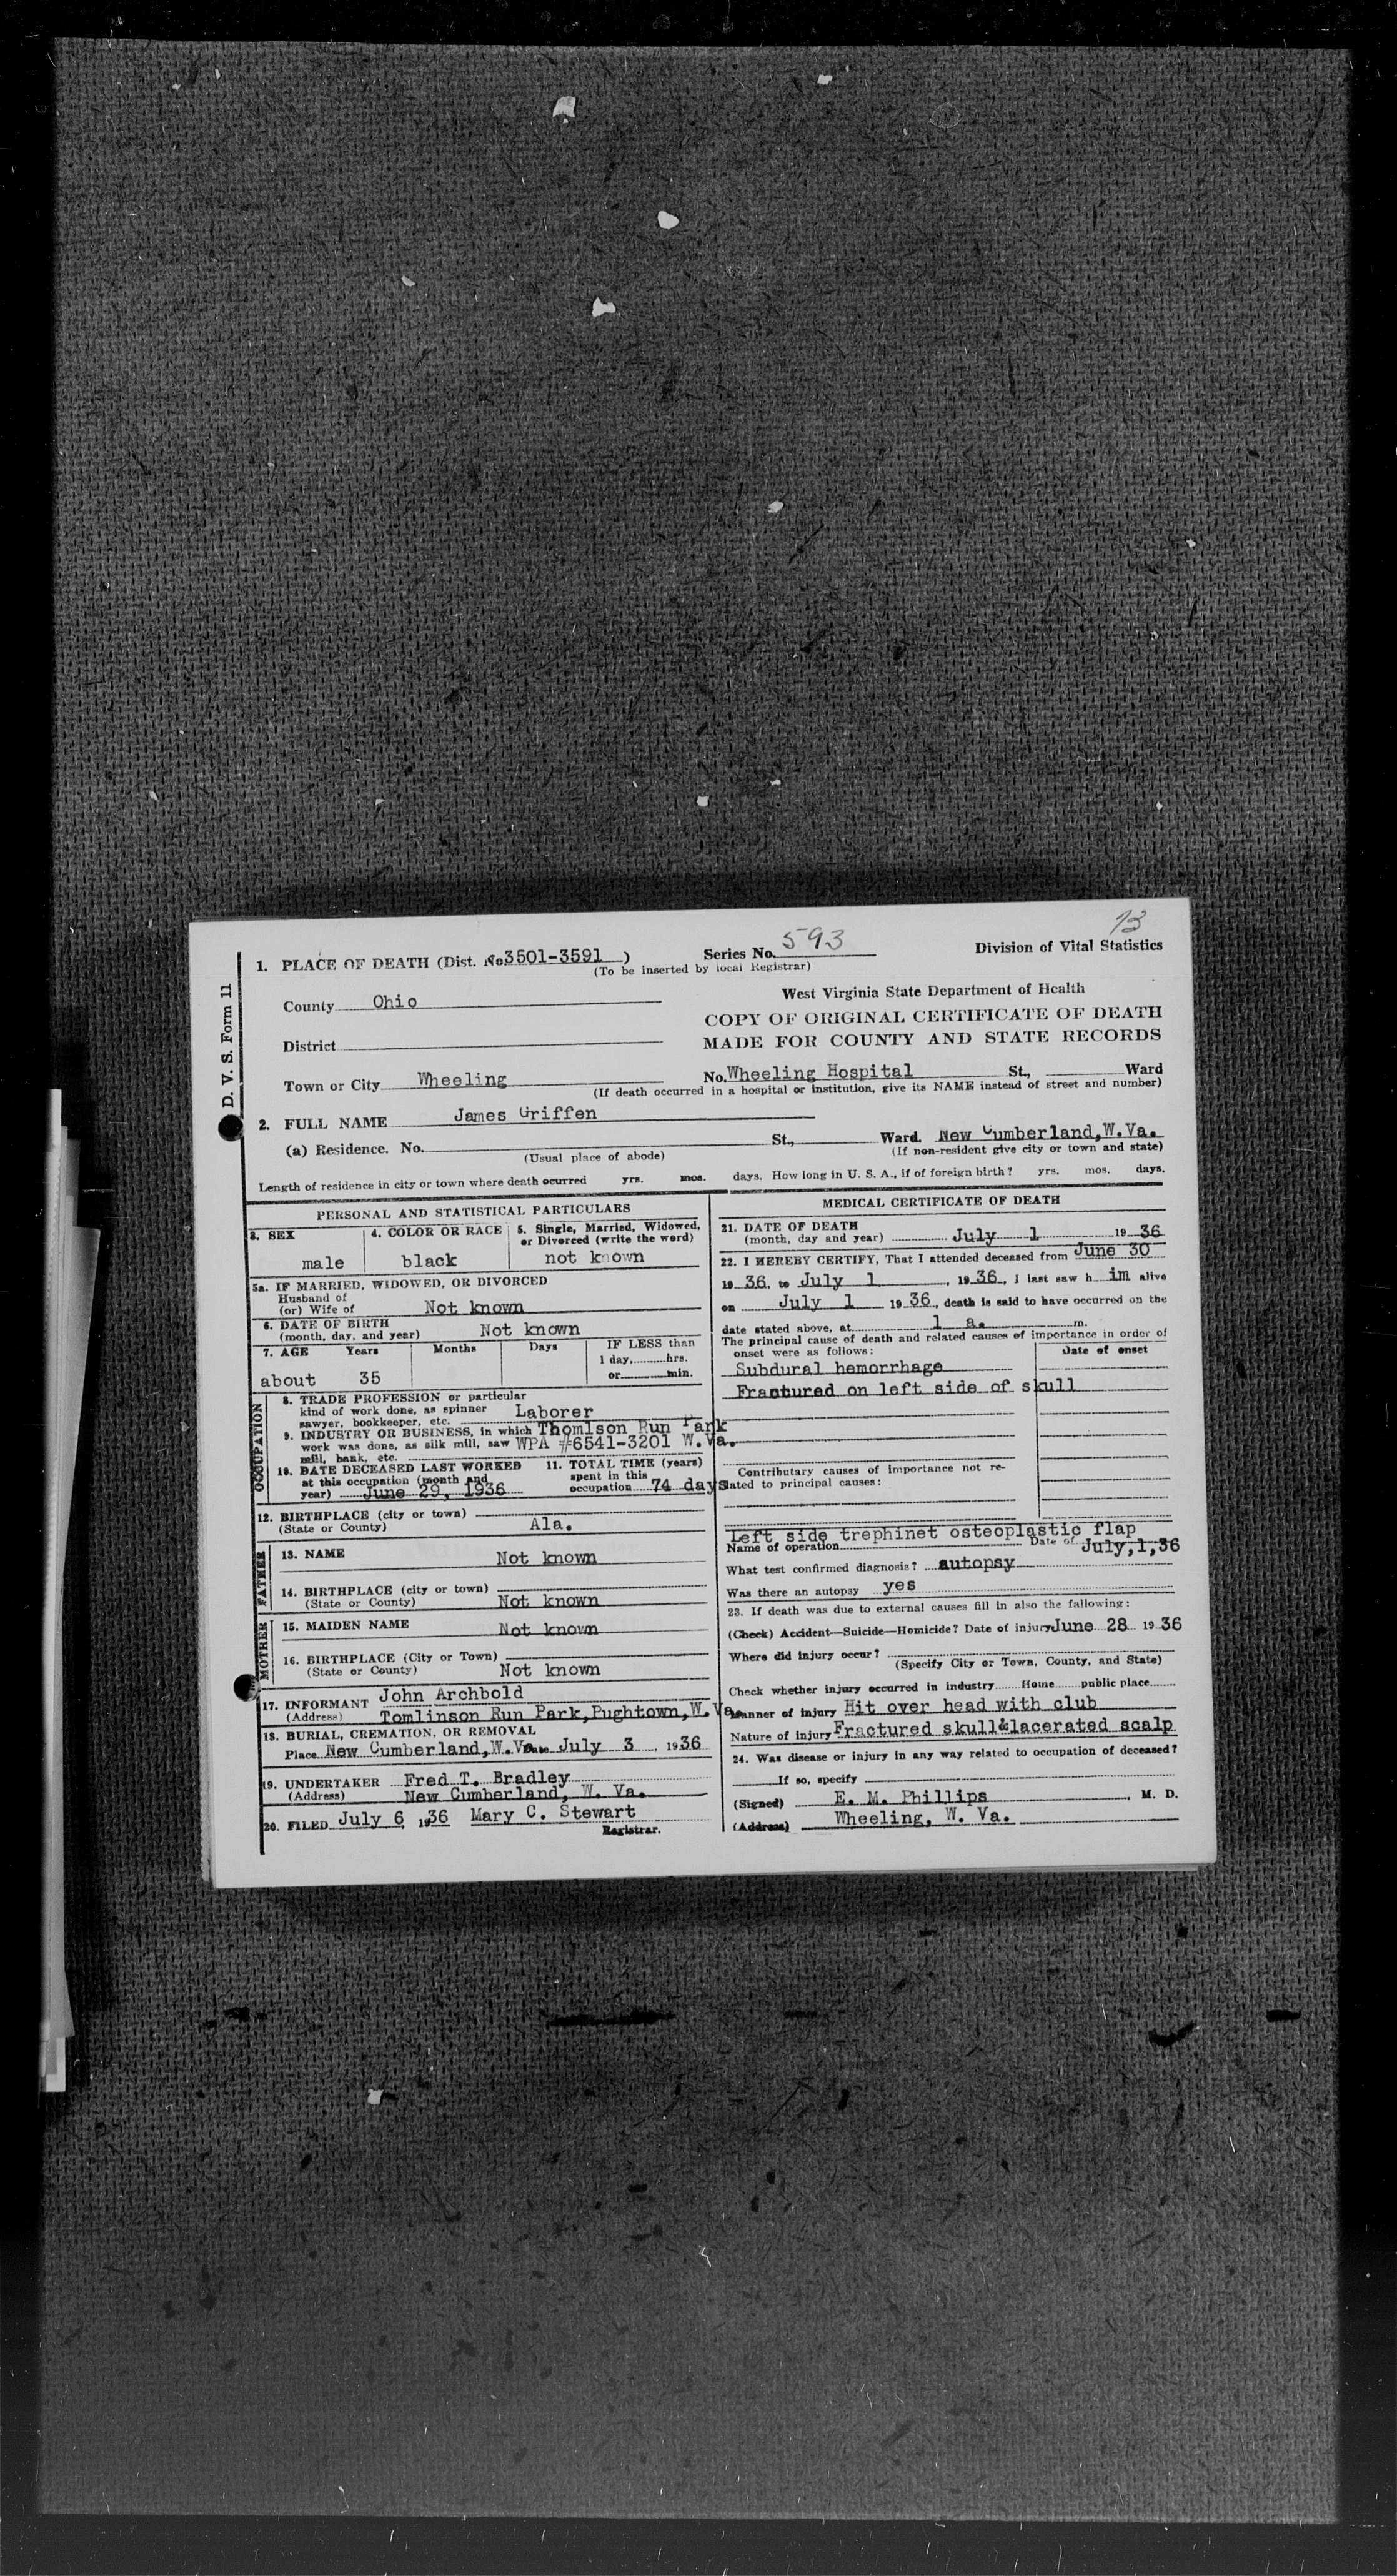 13
D. V. S. Form 11
1. PLACE OF DEATH (Dist. No 3501-3591 ) Series No. 593 Division of Vital Statistics
(To be inserted by local Registrar)
County Ohio
West Virginia State Department of Health
COPY OF ORIGINAL CERTIFICATE OF DEATH
MADE FOR COUNTY AND STATE RECORDS
District
Town or City Wheeling No. Wheeling Hospital St., Ward
(If death occurred in a hospital or institution, give its NAME instead of street and number)
2. FULL NAME James Griffen
(a) Residence. No. St., Ward. New Cumberland, W. Va.
(Usual place of abode) (If non-resident give city or town and state)
Length of residence in city or town where death ocurred yrs. mos. days. How long in U. S. A., if of foreign birth? yrs. mos. days.
PERSONAL AND STATISTICAL PARTICULARS
3. SEX
male
4. COLOR OR RACE
black
5. Single, Married, Widowed,
or Divorced (write the word)
not known
5a. IF MARRIED, WIDOWED, OR DIVORCED
Husband of
(or) Wife of Not known
6. DATE OF BIRTH
(month, day, and year) Not known
7. AGE Years Months Days IF LESS than
1 day, hrs.
about 35 or min.
OCCUPATION
8. TRADE PROFESSION or particular
kind of work done, as spinner
sawyer, bookkeeper, etc. Laborer
9. INDUSTRY OR BUSINESS, in which Thomlson Run Park
work was done, as silk mill, saw WPA #6541-3201 W.Va.
mill, bank, etc.
10. DATE DECEASED LAST WORKED
at this occupation (month and
year) June 29, 1936
11. TOTAL TIME (years)
spent in this
occupation 74 days
12. BIRTHPLACE (city or town)
(State or County) Ala.
FATHER
13. NAME Not known
14. BIRTHPLACE (city or town)
(State or County) Not known
MOTHER
15. MAIDEN NAME Not known
16. BIRTHPLACE (City or Town)
(State or County) Not known
17. INFORMANT John Archbold
(Address) Tomlinson Run Park, Pughtown, W. Va.
18. BURIAL, CREMATION, OR REMOVAL
Place New Cumberland, W. Va. Date July 3, 1936
19. UNDERTAKER Fred T. Bradley
(Address) New Cumberland, W. Va.
20. FILED July 6, 1936 Mary C. Stewart
Registrar.
MEDICAL CERTIFICATE OF DEATH
21. DATE OF DEATH
(month, day and year) July 1 1936
22. I HEREBY CERTIFY, That I attended deceased from June 30
1936, to July 1, 1936, I last saw him alive
on July 1 1936, death is said to have occurred on the
date stated above, at 1 a. m.
The principal cause of death and related causes of importance in order of
onset were as follows: Date of onset
Subdural hemorrhage
Fractured on left side of skull
Contributary causes of importance not re-
lated to principal causes:
Left side trephinet osteoplastic flap
Name of operation Date of July,1,36
What test confirmed diagnosis? autopsy
Was there an autopsy yes
23. If death was due to external causes fill in also the fallowing:
(Check) Accident—Suicide—Homicide? Date of injury June 28 1936
Where did injury occur?
(Specify City or Town, County, and State)
Check whether injury occurred in industry Home public place
Manner of injury Hit over head with club
Nature of injury Fractured skull&lacerated scalp
24. Was disease or injury in any way related to occupation of deceased?
If so, specify
(Signed) E. M. Phillips, M. D.
(Address) Wheeling, W. Va.